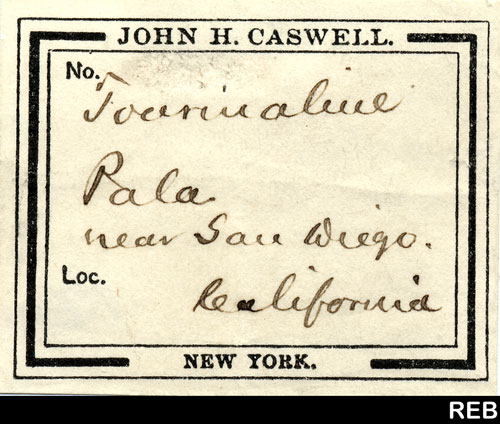 JOHN H. CASWELL.
No.
Tourmaline
Pala
near San Diego.
Loc.
California
NEW YORK.
REB